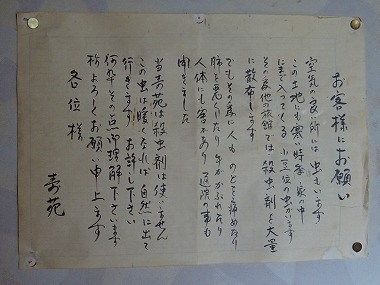 お客様にお願い
空気の良い所には虫もいます
この土地にも寒い時季家の中
にまで入ってくる小豆位の虫がいます
その為他の旅館では殺虫剤を大量
に散布します
でもその為に人ものどを痛めたり
肺を悪くしたり手がかぶれたり
人体にも害があり
聞きました
当寿苑は殺虫剤は使いません
この虫は暖くなれば自然に出て
行きますお許し下さい
何卒その点御理解下さいます
様よろしくお願い申上ます
各位様
寿苑